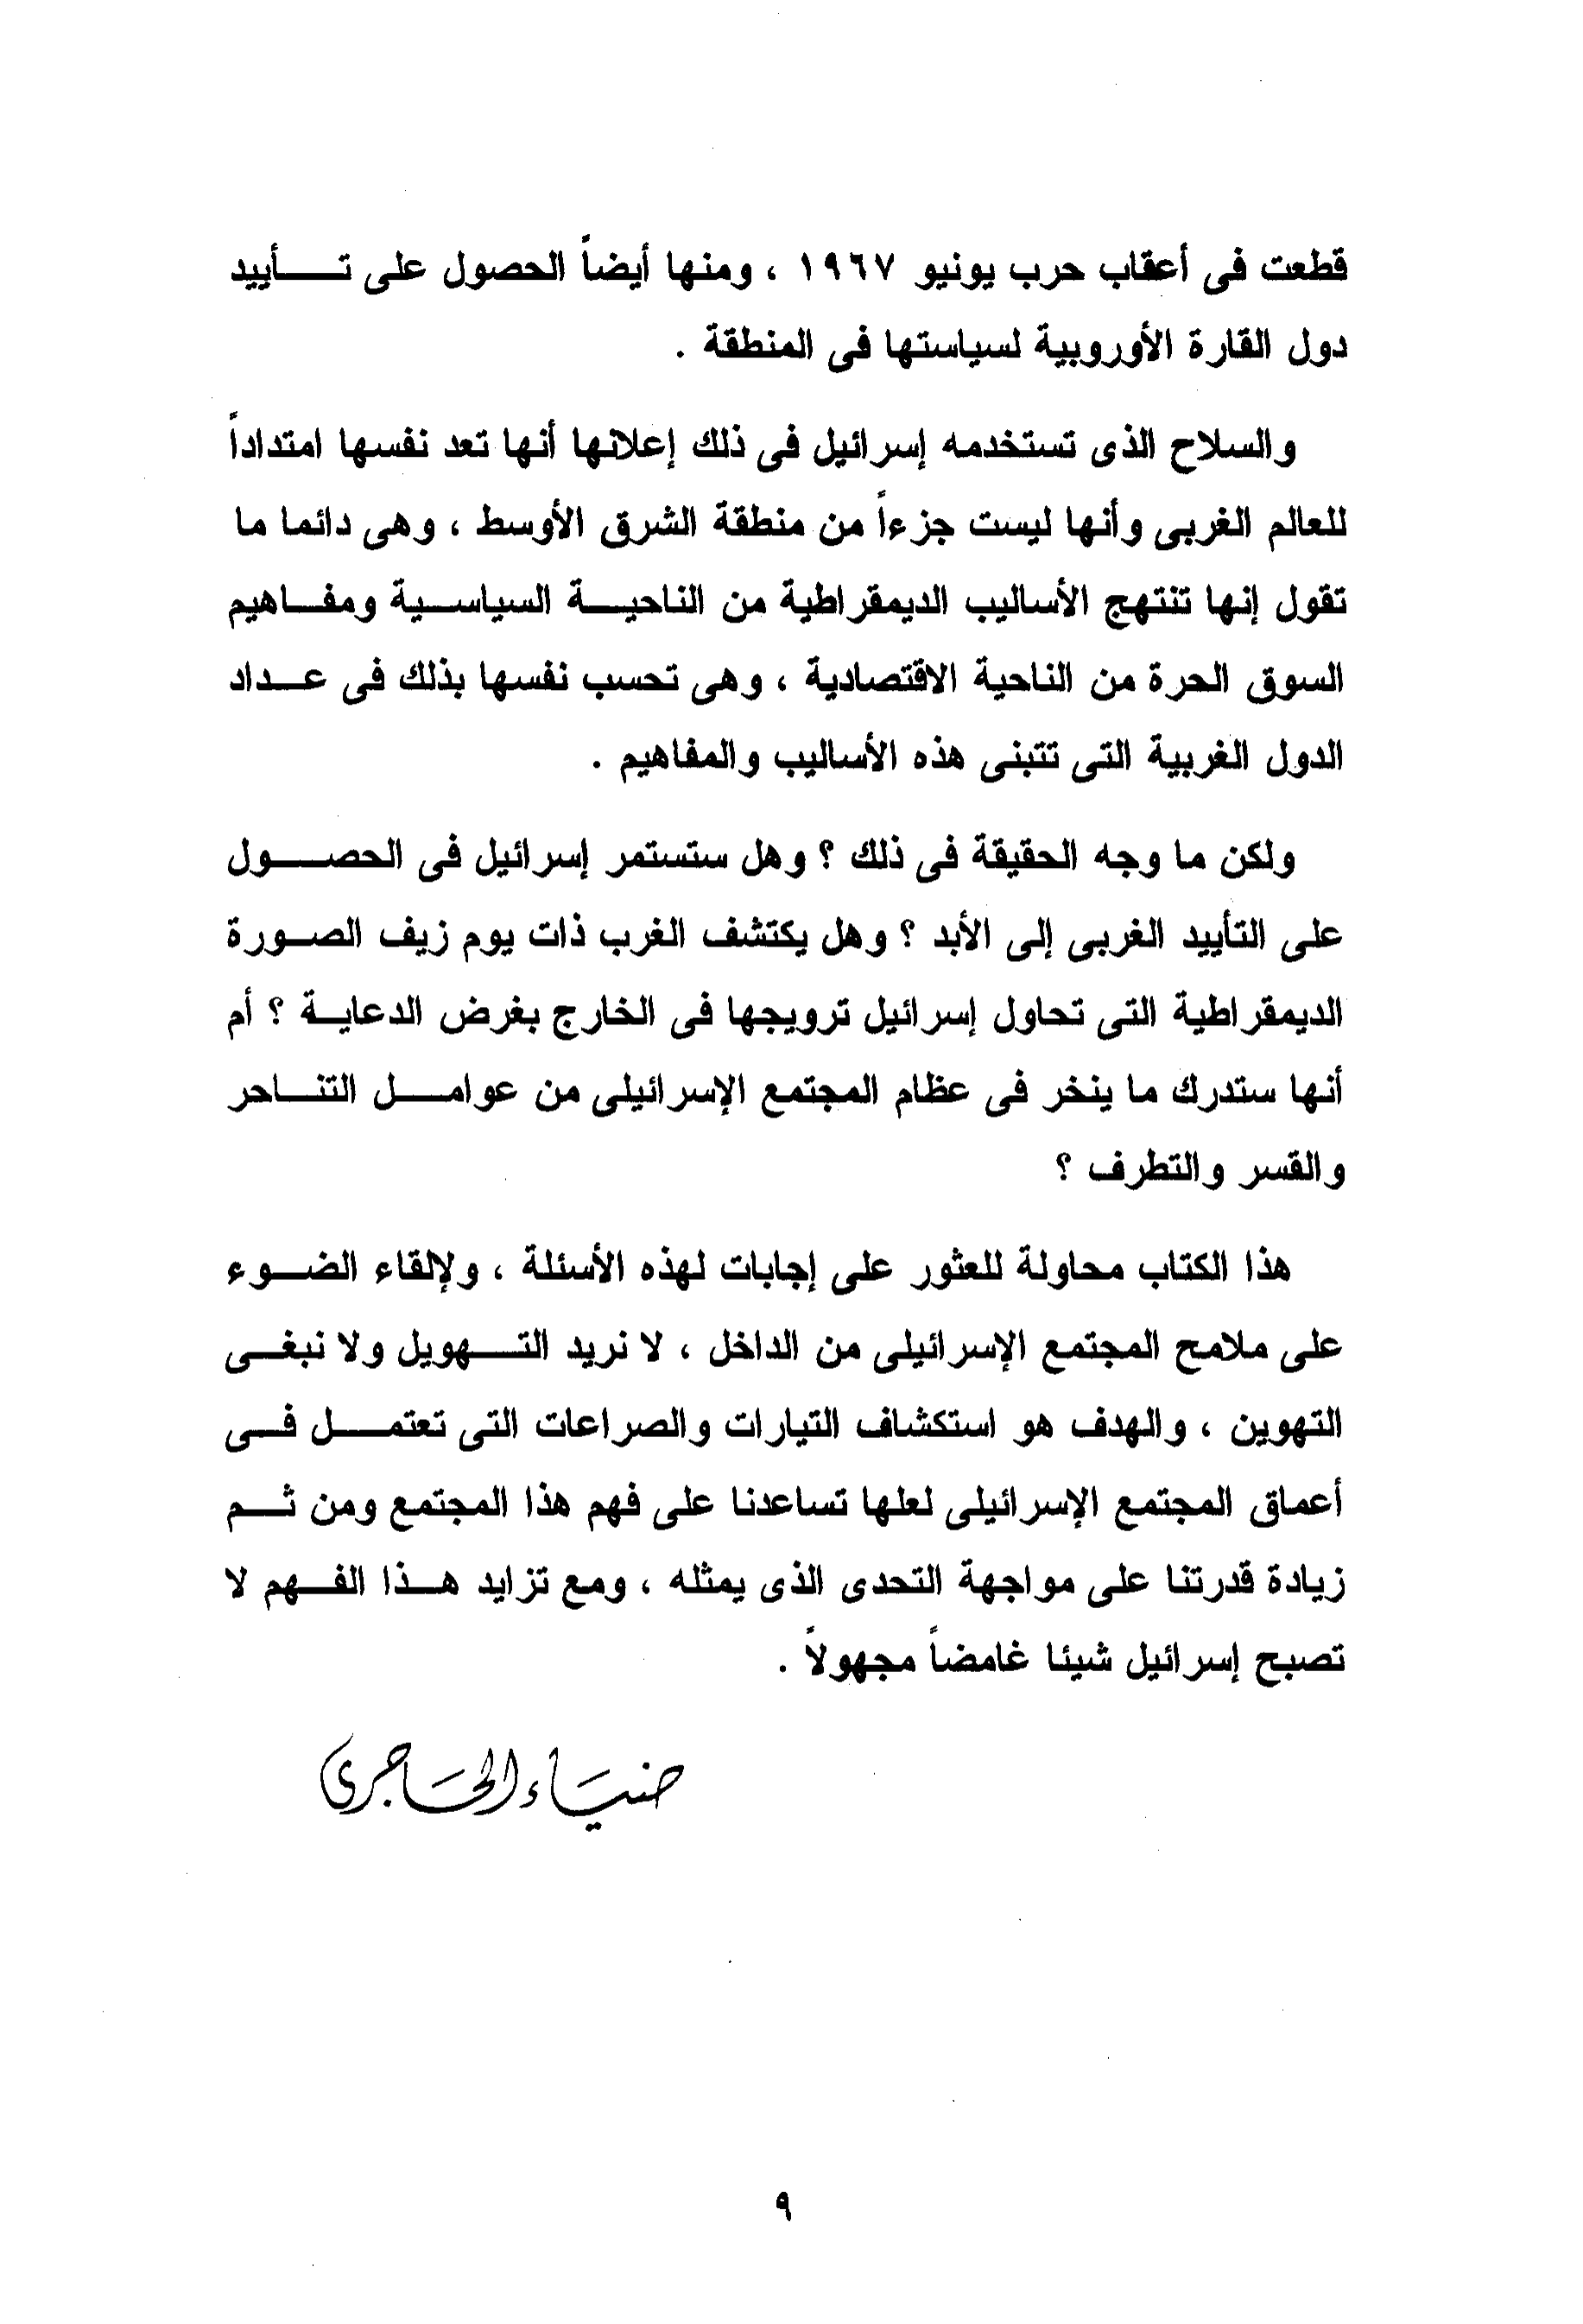 قطعت فى أعقاب حرب يونيو ١٩٦٧ ، ومنها أيضاً الحصول على تأييد
دول القارة الأوروبية لسياستها فى المنطقة .
والسلاح الذى تستخدمه إسرائيل فى ذلك إعلانها أنها تعد نفسها امتداداً
للعالم الغربى وأنها ليست جزءاً من منطقة الشرق الأوسط ، وهى دائما ما
تقول إنها تنتهج الأساليب الديمقراطية من الناحية السياسية ومفاهيم
السوق الحرة من الناحية الاقتصادية ، وهى تحسب نفسها بذلك فى عداد
الدول الغربية التى تتبنى هذه الأساليب والمفاهيم .
ولكن ما وجه الحقيقة فى ذلك ؟ وهل ستستمر إسرائيل فى الحصول
على التأييد الغربى إلى الأبد ؟ وهل يكتشف الغرب ذات يوم زيف الصورة
الديمقراطية التى تحاول إسرائيل ترويجها فى الخارج بغرض الدعاية ؟ أم
أنها ستدرك ما ينخر فى عظام المجتمع الإسرائيلى من عوامل التناحر
والقسر والتطرف ؟
هذا الكتاب محاولة للعثور على إجابات لهذه الأسئلة ، ولإلقاء الضوء
على ملامح المجتمع الإسرائيلى من الداخل ، لا نريد التهويل ولا نبغى
التهوين ، والهدف هو استكشاف التيارات والصراعات التى تعتمل فى
أعماق المجتمع الإسرائيلى لعلها تساعدنا على فهم هذا المجتمع ومن ثم
زيادة قدرتنا على مواجهة التحدى الذى يمثله ، ومع تزايد هذا الفهم لا
تصبح إسرائيل شيئا غامضاً مجهولاً .
ضياء الحاجرى
٩